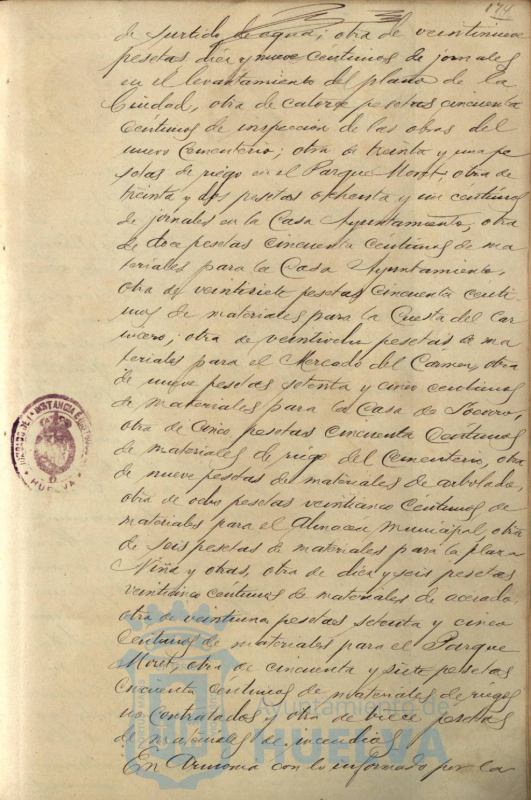 174
de surtido de agua; otra de veintinueve
pesetas diez y nueve céntimos de jornales
en el levantamiento del plano de la
Ciudad, otra de catorce pesetas cincuenta
céntimos de inspección de las obras del
nuevo Cementerio; otra de treinta y una pe
setas de riego en el Parque Moret, otra de
treinta y dos pesetas ochenta y un céntimos
de jornales en la Casa Ayuntamiento, otra
de doce pesetas cincuenta céntimos de ma
teriales para la Casa Ayuntamiento,
otra de veintisiete pesetas cincuenta cénti
mos de materiales para la Cuesta del Car
nicero; otra de veintiocho pesetas de ma
teriales para el Mercado del Carmen, otra
de nueve pesetas setenta y cinco céntimos
de materiales para la Casa de Socorro,
otra de cinco pesetas cincuenta céntimos
de materiales de riego del Cementerio, otra
de nueve pesetas de materiales de arbolado,
otra de ocho pesetas veinticinco céntimos de
materiales para el Almacen Municipal, otra
de seis pesetas de materiales para la plaza
Niña y otras, otra de diez y seis pesetas
veinticinco céntimos de materiales de acerado,
otra de veintiuna pesetas setenta y cinco
céntimos de materiales para el Parque
Moret, otra de cincuenta y siete pesetas
cincuenta céntimos de materiales de riegos
no contratados y otra de pesetas
de materiales de incendios.
En armonia con lo informado por la
HUELVA
Ayuntamiento de
HUELVA